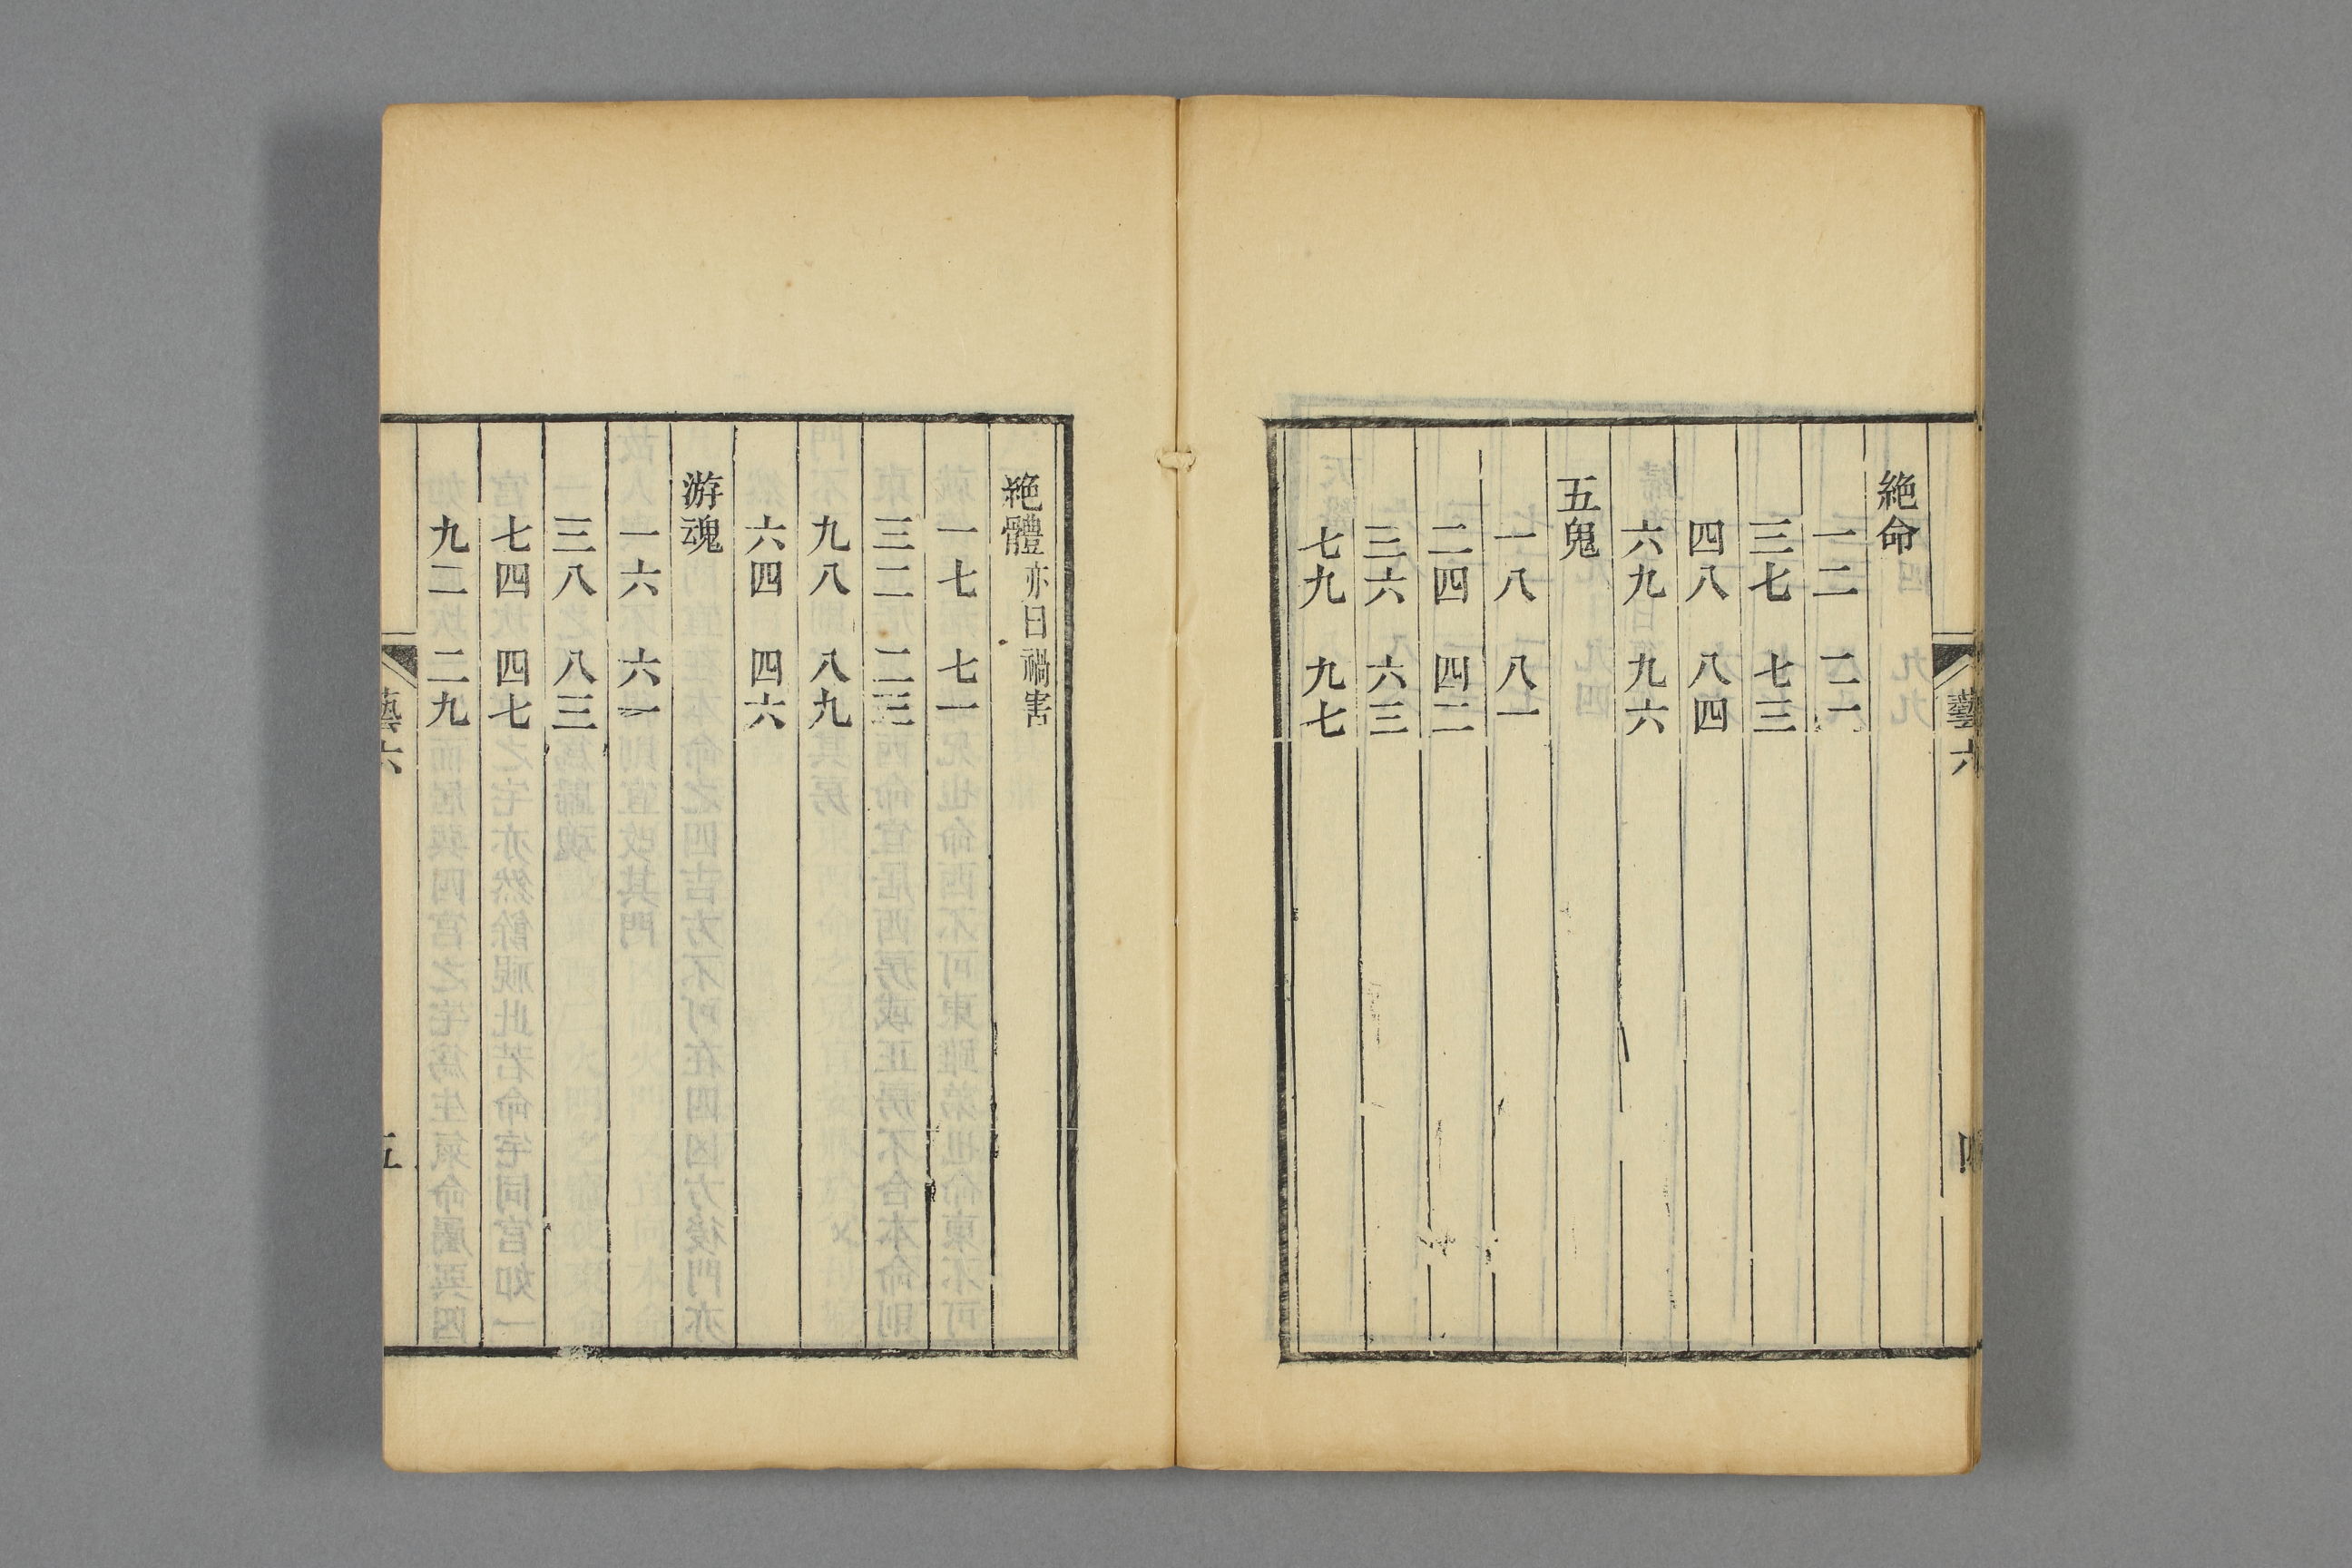 藝六
絶命
一二　二一
三七　七三
四八　八四
六九　九六
五鬼
一八　八一
二四　四二
三六　六三
七九　九七
絶體亦曰禍害
一七　七一
三二　二三
九八　八九
六四　四六
游魂
一六　六一
三八　八三
七四　四七
九二　二九
藝六
五